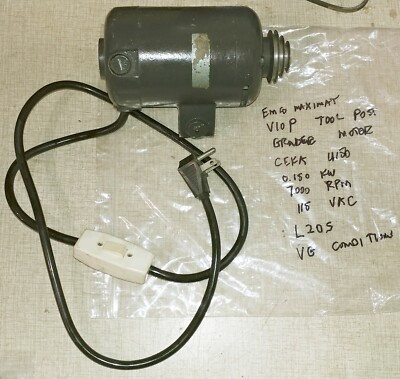 EMCO MAXIMAT
V10P TOOL POST
GRINDER MOTOR
CEKA U150
0.150 KW
7000 RPM
115 VAC
L205
VG CONDITION